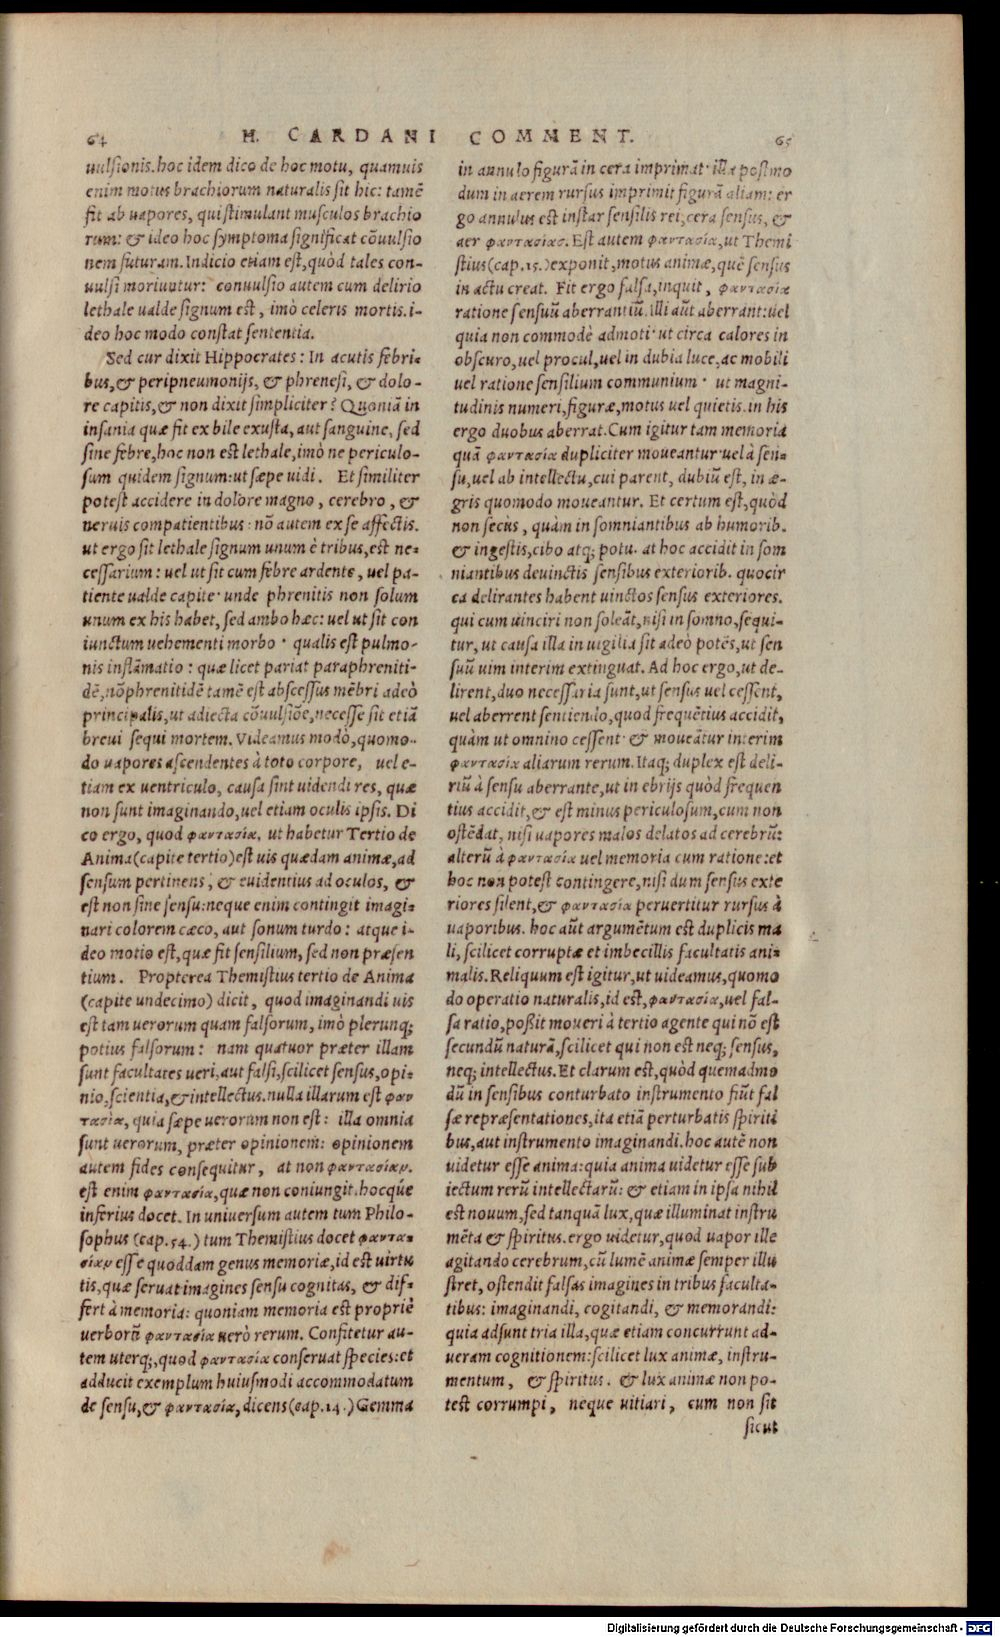 64
H. CARDANI COMMENT.
65
uulsionis. hoc idem dico de hoc motu, quamuis
enim motus brachiorum naturalis sit hic: tamẽ
fit ab uapores, qui stimulant musculos brachio
rum: & ideo hoc symptoma significat cõuulsio
nem futuram. Indicio etiam est, quòd tales con-
uulsi moriuntur: conuulsio autem cum delirio
lethale ualde signum est, imò celeris mortis. i-
deo hoc modo constat sententia.
Sed cur dixit Hippocrates: In acutis febri-
bus, & peripneumonijs, & phrenesi, & dolo-
re capitis, & non dixit simpliciter? Quoniã in
insania quæ fit ex bile exusta, aut sanguine, sed
sine febre, hoc non est lethale, imò ne periculo-
sum quidem signum: ut sæpe uidi. Et similiter
potest accidere in dolore magno, cerebro, &
neruis compatientibus: nõ autem ex se affectis.
ut ergo sit lethale signum unum è tribus, est ne-
cessarium: uel ut sit cum febre ardente, uel pa-
tiente ualde capite· unde phrenitis non solum
unum ex his habet, sed ambo hæc: uel ut sit con
iunctum uehementi morbo· qualis est pulmo-
nis inflãmatio: quæ licet pariat paraphreniti-
dẽ, nõ phrenitidẽ tamẽ est abscessus mẽbri adeò
principalis, ut adiecta cõuulsiõe, necesse sit etiã
breui sequi mortem. Videamus modò, quomo-
do uapores ascendentes à toto corpore, uel e-
tiam ex uentriculo, causa sint uidendi res, quæ
non sunt imaginando, uel etiam oculis ipsis. Di
co ergo, quod φαντασία, ut habetur Tertio de
Anima (capite tertio) est uis quædam animæ, ad
sensum pertinens, & euidentius ad oculos, &
est non sine sensu: neque enim contingit imagi-
nari colorem cæco, aut sonum turdo: atque i-
deo motio est, quæ fit sensilium, sed non præsen
tium. Propterea Themistius tertio de Anima
(capite undecimo) dicit, quod imaginandi uis
est tam uerorum quam falsorum, imò plerunq;
potius falsorum: nam quatuor præter illam
sunt facultates ueri, aut falsi, scilicet sensus, opi-
nio, scientia, & intellectus. nulla illarum est φαν
τασία, quia sæpe uerorum non est: illa omnia
sunt uerorum, præter opinionem: opinionem
autem fides consequitur, at non φαντασίαν.
est enim φαντασία, quæ non coniungit. hocq́ue
inferius docet. In uniuersum autem tum Philo-
sophus (cap. 54.) tum Themistius docet φαντα-
σίαν esse quoddam genus memoriæ, id est uirtu
tis, quæ seruat imagines sensu cognitas, & dif-
fert à memoria: quoniam memoria est propriè
uerborũ φαντασία uerò rerum. Confitetur au-
tem uterq;, quod φαντασία conseruat species: et
adducit exemplum huiusmodi accommodatum
de sensu, & φαντασία, dicens (cap. 14.) Gemma
in annulo figurã in cera imprimat· illa postmo
dum in aerem rursus imprimit figurã aliam: er
go annulus est instar sensilis rei, cera sensus, &
aer φαντασίας. Est autem φαντασία, ut Themi
stius (cap. 15.) exponit, motus animæ, quẽ sensus
in actu creat. Fit ergo falsa, inquit, φαντασία
ratione sensuũ aberrantiũ. illi aũt aberrant: uel
quia non commodè admoti· ut circa calores in
obscuro, uel procul, uel in dubia luce, ac mobili
uel ratione sensilium communium· ut magni-
tudinis numeri, figuræ, motus uel quietis. in his
ergo duobus aberrat. Cum igitur tam memoria
quã φαντασία dupliciter moueantur· uel à sen-
su, uel ab intellectu, cui parent, dubiũ est, in æ-
gris quomodo moueantur. Et certum est, quòd
non secùs, quàm in somniantibus ab humorib.
& ingestis, cibo atq; potu. at hoc accidit in som
niantibus deuinctis sensibus exteriorib. quocir
ca delirantes habent uinctos sensus exteriores.
qui cum uinciri non soleãt, nisi in somno, sequi-
tur, ut causa illa in uigilia sit adeò potẽs, ut sen
suũ uim interim extinguat. Ad hoc ergo, ut de-
lirent, duo necessaria sunt, ut sensus uel cessent,
uel aberrent sentiendo, quod frequẽtius accidit,
quàm ut omnino cessent· & moueãtur interim
φαντασία aliarum rerum. Itaq; duplex est deli-
riũ à sensu aberrante, ut in ebrijs quòd frequen
tius accidit, & est minus periculosum, cum non
ostẽdat, nisi uapores malos delatos ad cerebrũ:
alterũ à φαντασία uel memoria cum ratione: et
hoc non potest contingere, nisi dum sensus exte
riores silent, & φαντασία peruertitur rursus à
uaporibus. hoc aũt argumẽtum est duplicis ma
li, scilicet corruptæ et imbecillis facultatis ani-
malis. Reliquum est igitur, ut uideamus, quomo
do operatio naturalis, id est, φαντασία, uel fal-
sa ratio, poßit moueri à tertio agente qui nõ est
secundũ naturã, scilicet qui non est neq; sensus,
neq; intellectus. Et clarum est, quòd quemadmo
dũ in sensibus conturbato instrumento fiũt fal
sæ repræsentationes, ita etiã perturbatis spiriti
bus, aut instrumento imaginandi. hoc autẽ non
uidetur esse anima: quia anima uidetur esse sub
iectum rerũ intellectarũ: & etiam in ipsa nihil
est nouum, sed tanquã lux, quæ illuminat instru
mẽta & spiritus. ergo uidetur, quod uapor ille
agitando cerebrum, cũ lumẽ animæ semper illu
stret, ostendit falsas imagines in tribus faculta-
tibus: imaginandi, cogitandi, & memorandi:
quia adsunt tria illa, quæ etiam concurrunt ad-
ueram cognitionem: scilicet lux animæ, instru-
mentum, & spiritus. & lux animæ non po-
test corrumpi, neque uitiari, cum non sit
sicut
Digitalisierung gefördert durch die Deutsche Forschungsgemeinschaft - DFG